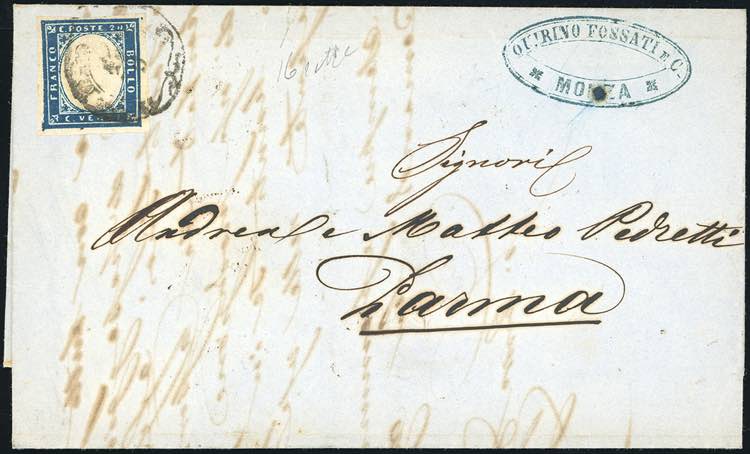 C. POSTE 20
FRANCO
BOLLO
C. VENTI
16
QUIRINO FOSSATI E C.
MONZA
Signori
Andrea e Matteo Pedretti
Parma